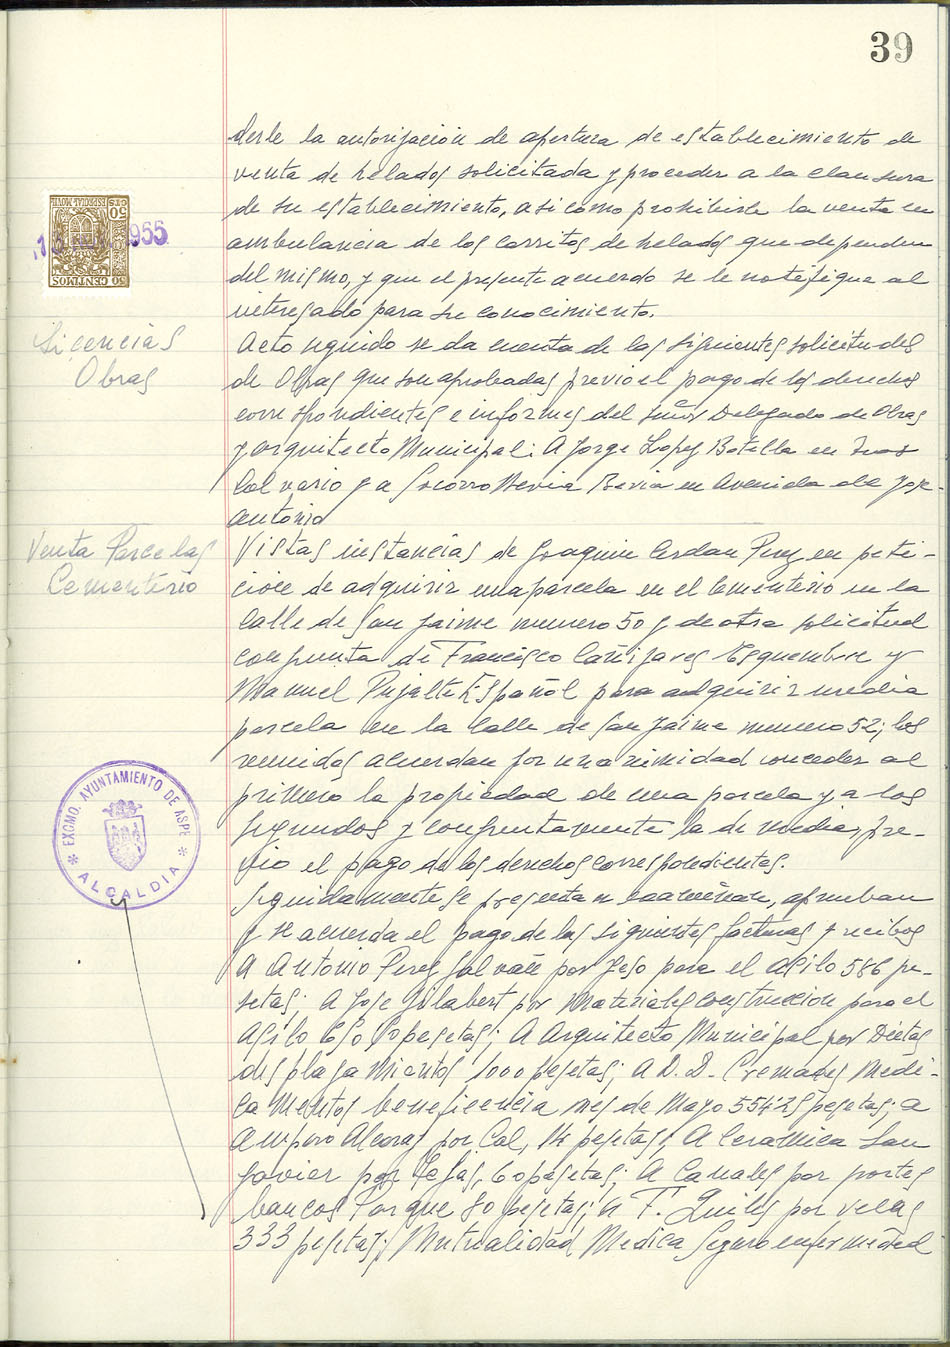 39
derle la autorización de apertura de establecimiento de
venta de helados solicitada y proceder a la clausura
de su establecimiento, asi como prohibirle la venta en
ambulancia de los carritos de helados que dependen
del mismo, y que el presente acuerdo se le notifique al
interesado para su conocimiento.
50 CENTIMOS
ESPECIAL MOVIL
50 CTS
1955
Licencias
Obras
Acto seguido se da cuenta de las siguientes solicitudes
de Obras que son aprobadas previo el pago de los derechos
correspondientes e informes del señor Delegado de Obras
y arquitecto Municipal: A Jorge Lopez Botella en
Calvario y a Socorro Bevia en Avenida de Jose-
Antonio
Venta Parcelas
Cementerio
Vistas instancias de Joaquin Cerdan Perez en peti-
cion de adquirir una parcela en el Cementerio en la
Calle de San Jaime numero 50 y de otra solicitud
conjunta de Francisco Cañizares Esquembre y
Manuel Pujalte Español para adquirir media
parcela en la Calle de San Jaime numero 52; los
reunidos acuerdan por unanimidad conceder al
primero la propiedad de una parcela y a los
segundos y conjuntamente la de media, pre-
vio el pago de los derechos correspondientes.
EXCMO. AYUNTAMIENTO DE ASPE
* ALCALDIA *
Seguidamente se presenta examinan, aprueban
y se acuerda el pago de las siguientes facturas y recibos
A Antonio Perez por Yeso para el Asilo 586 pe-
setas; A Jose Gilabert por Materiales construccion para el
Asilo pesetas; A Arquitecto Municipal por Dietas
desplazamientos 1000 pesetas; A D. D. Cremades Medi-
camentos beneficencia mes de Mayo pesetas; a
Amparo Alcaraz por Cal, 14 pesetas; A Ceramica San
Javier por Tejas, 60 pesetas; A Canales por portes
bancos Parque 80 pesetas; a F. Quiles por velas
333 pesetas; Mutualidad Medica Seguro enfermedad